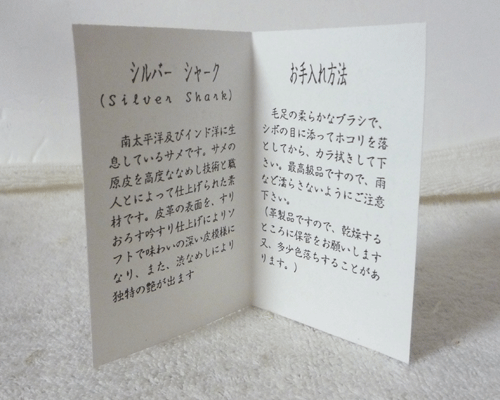 シルバー シャーク
(Silver Shark)
南太平洋及びインド洋に生
息しているサメです。サメの
原皮を高度ななめし技術と職
人とによって仕上げられた素
材です。皮革の表面を、すり
おろす吟すり仕上げによりソ
フトで味わいの深い皮模様に
なり、また、渋なめしにより
独特の艶が出ます
お手入れ方法
毛足の柔らかなブラシで、
シボの目に添ってホコリを落
としてから、カラ拭きして下
さい。最高級品ですので、雨
など濡らさないようにご注意
下さい。
(革製品ですので、乾燥する
ところに保管をお願いします
又、多少色落ちすることがあ
ります。)